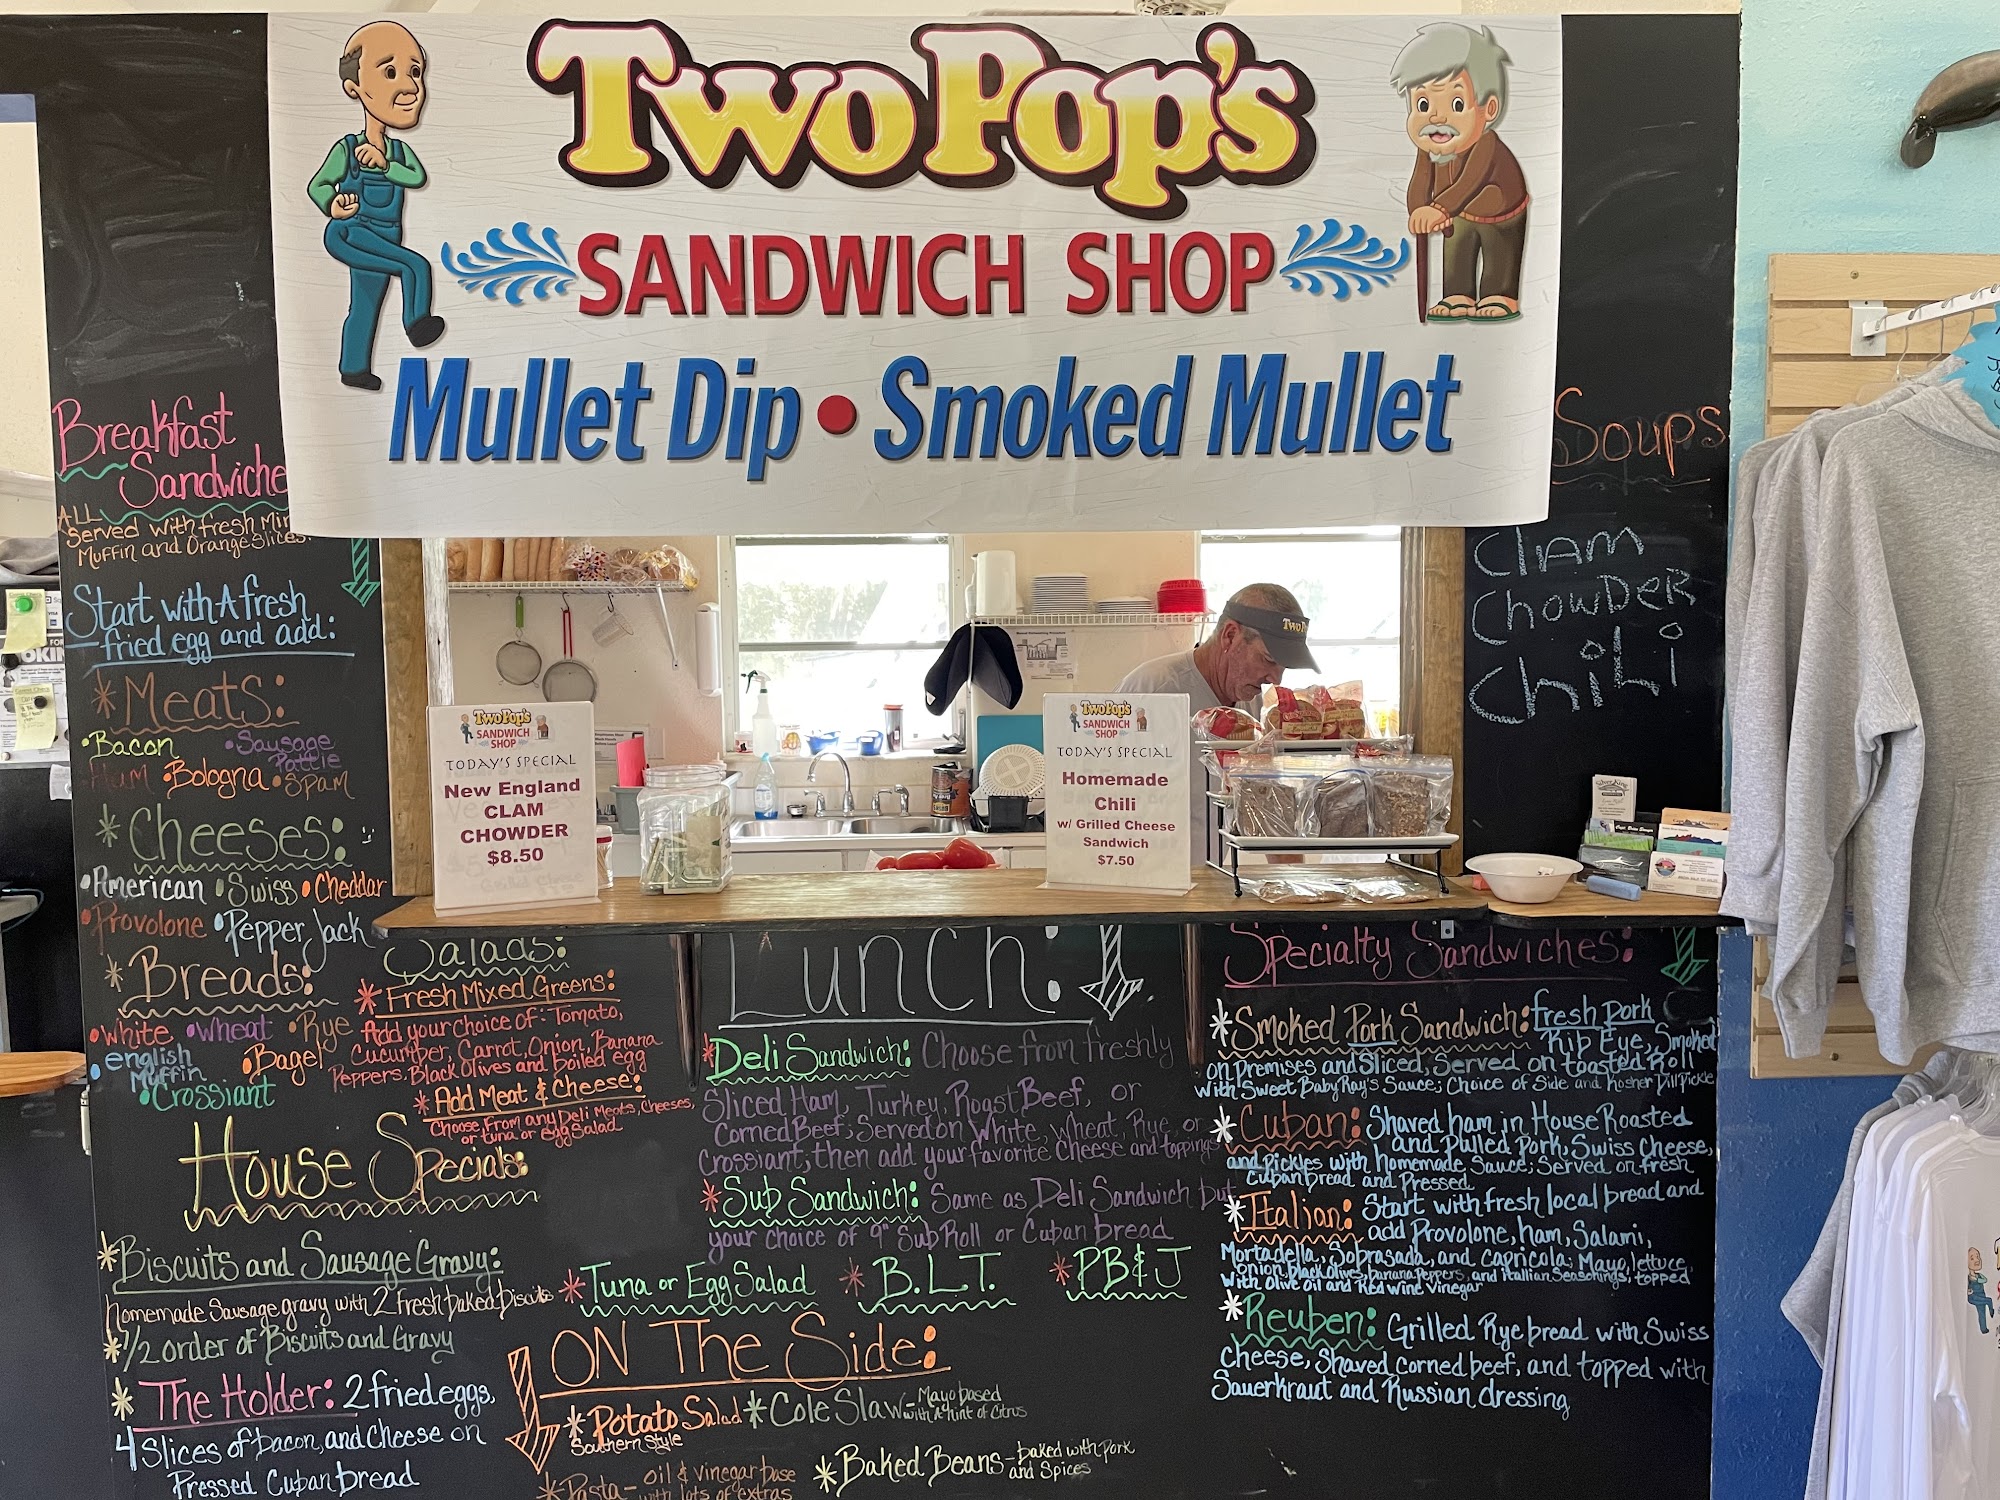 Two Pop's
SANDWICH SHOP
Mullet Dip • Smoked Mullet
Breakfast
Sandwiche
ALL
Served with fresh Min
Muffin and Orange Slices.
Start with A fresh
fried egg and add:
* Meats:
• Bacon • Sausage Pattie
Ham • Bologna • Spam
* Cheeses:
• American • Swiss • Cheddar
• Provolone • Pepper Jack
* Breads:
• White • Wheat • Rye
• english Muffin • Bagel
• Crossiant
Salads:
* Fresh Mixed Greens:
Add your choice of: Tomato,
Cucumber, Carrot, Onion, Banana
Peppers, Black Olives and Boiled egg
* Add Meat & Cheese:
Choose From any Deli Meats, Cheeses,
or tuna or egg Salad
House Specials:
* Biscuits and Sausage Gravy:
homemade Sausage gravy with 2 fresh baked biscuits
* 1/2 order of Biscuits and Gravy
* The Holder: 2 fried eggs,
4 Slices of bacon, and Cheese on
Pressed Cuban bread
TwoPop's
SANDWICH
SHOP
TODAY'S SPECIAL
New England
CLAM
CHOWDER
$8.50
TwoPop's
SANDWICH
SHOP
TODAY'S SPECIAL
Homemade
Chili
w/ Grilled Cheese
Sandwich
$7.50
Lunch:
* Deli Sandwich: Choose from freshly
Sliced Ham, Turkey, Roast Beef, or
Corned Beef; Served on White, Wheat, Rye, or
Crossiant, then add your favorite Cheese and toppings
* Sub Sandwich: Same as Deli Sandwich but
your choice of 9" Sub Roll or Cuban bread
* Tuna or Egg Salad * B.L.T. * PB&J
ON The Side:
* Potato Salad
Southern Style
* Cole Slaw - Mayo based
with a hint of Citrus
* Pasta - oil & vinegar base
with lots of extras
* Baked Beans - baked with pork
and Spices
Soups
Clam
Chowder
Chili
Specialty Sandwiches:
* Smoked Pork Sandwich: fresh Pork
Rib Eye, Smoked
on premises and Sliced, Served on toasted Roll
with Sweet Baby Ray's Sauce; Choice of Side and Kosher Dill Pickle
* Cuban: Shaved ham in House Roasted
and Pulled Pork, Swiss Cheese,
and Pickles with homemade Sauce; Served on fresh
Cuban bread and Pressed
* Italian: Start with fresh local bread and
add Provolone, Ham, Salami,
Mortadella, Sobrasada, and Capricola; Mayo, lettuce,
onion, Black olives, banana Peppers, and Itallian Seasonings; topped
with olive oil and Red wine vinegar
* Reuben: Grilled Rye bread with Swiss
Cheese, Shaved Corned beef, and topped with
Sauerkraut and Russian dressing